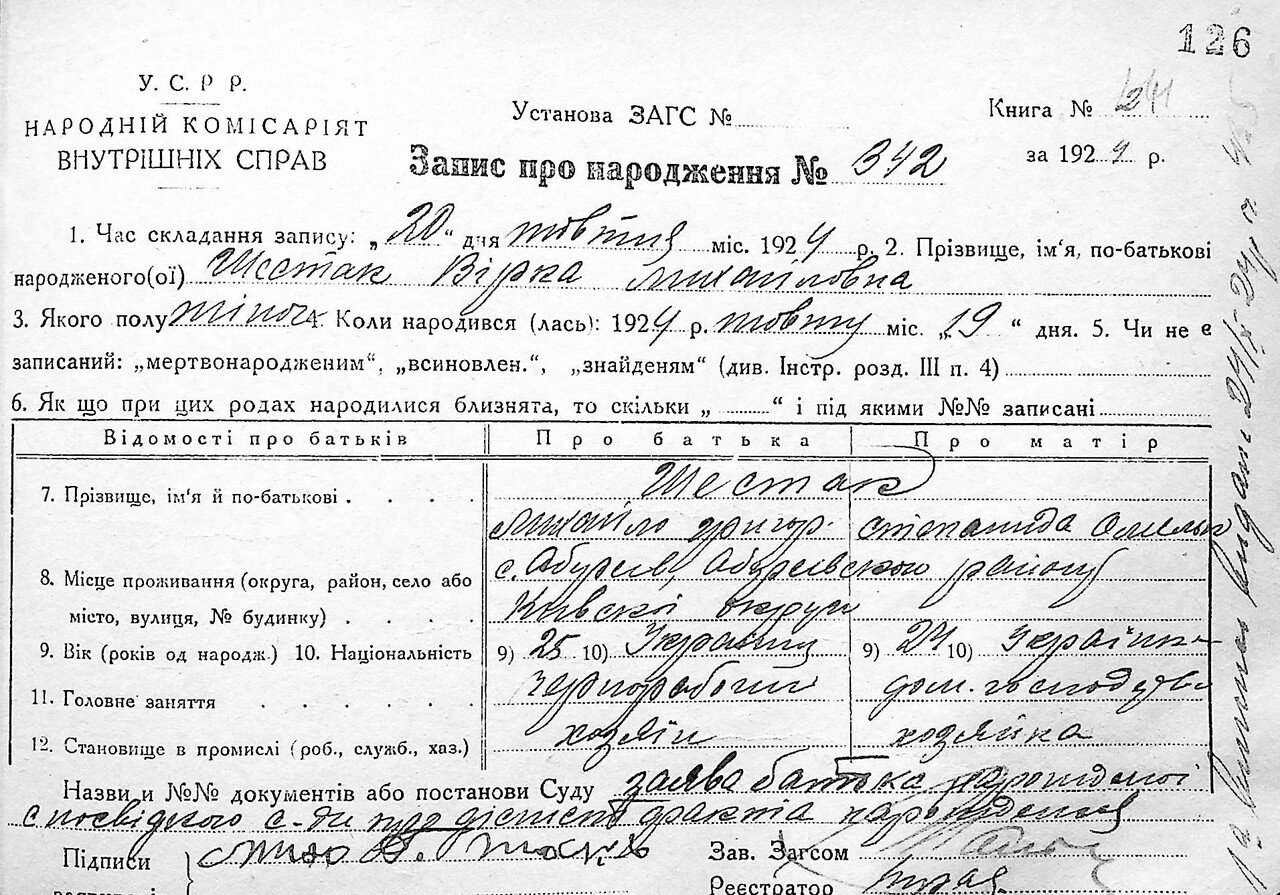 126
У. С. Р Р.
НАРОДНІЙ КОМІСАРІЯТ
ВНУТРІШНІХ СПРАВ
Установа ЗАГС №
Книга №
за 1924 р.
Запис про народження № 342
1. Час складання запису: „20“ дня жовтня міс. 1924 р. 2. Прізвище, ім‘я, по-батькові
народженого(ої) Шестак Вірка Михайловна
3. Якого полу жіноч. 4. Коли народився (лась): 1924 р. жовтня міс. „19“ дня. 5. Чи не є
записаний: „мертвонародженим“, „всиновлен.“, „знайденям“ (див. Інстр. розд. III п. 4)
6. Як що при цих родах народилися близнята, то скільки „ “ і під якими №№ записані
Відомості про батьків Про батька Про матір
7. Прізвище, ім‘я й по-батькові Шестак
Михайло Григор. Степанида Омельк
8. Місце проживання (округа, район, село або
місто, вулиця, № будинку)
с. району
Київської округи
9. Вік (років од народж.) 10. Національність 9) 25 10) Українец 9) 24 10) Українк
11. Головне заняття чернорабочий дом. господарст
12. Становище в промислі (роб., служб., хаз.) хозяїн хозяйка
Назви и №№ документів або постанови Суду заява батька народженої
с посвідкою с-ди про дістств факта народження
Підписи
Зав. Загсом
Реєстратор